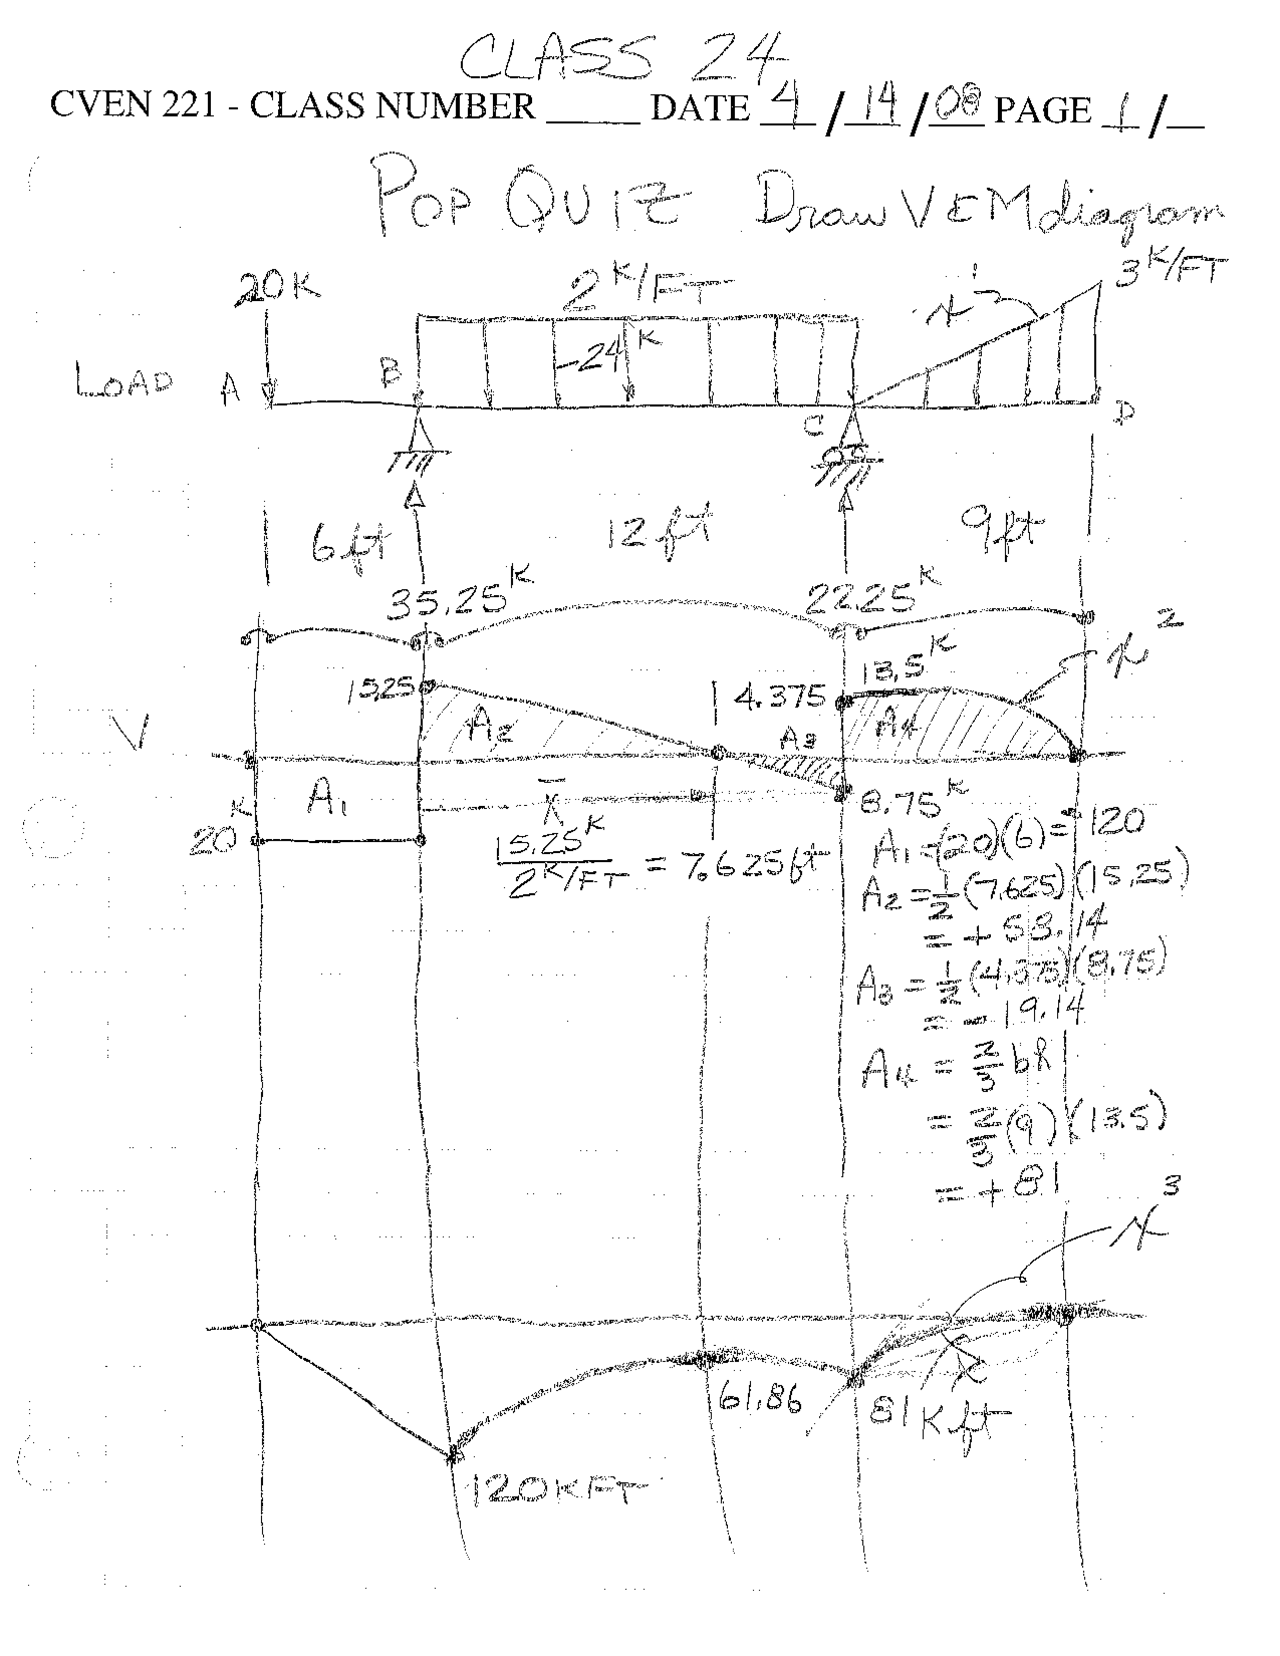 CLASS 24
CVEN 221 - CLASS NUMBER ____ DATE 4 / 14 / 08 PAGE 1 / __
POP QUIZ Draw V & M diagram
20K
2 K/FT
x¹
3 K/FT
-24 K
LOAD A B C D
6ft 12ft 9ft
35.25 K 22.25 K
x²
15.25 4.375 13.5 K
V A2 A3 A4
A1 x̄ 8.75 K
20 K
15.25 K / 2 K/FT = 7.625ft
A1 = (20)(6) = -120
A2 = 1/2 (7.625)(15.25)
= + 58.14
A3 = 1/2 (4.375)(8.75)
= - 19.14
A4 = 2/3 bh
= 2/3 (9)(13.5)
= + 81
x³
61.86
81 K ft
120 K FT